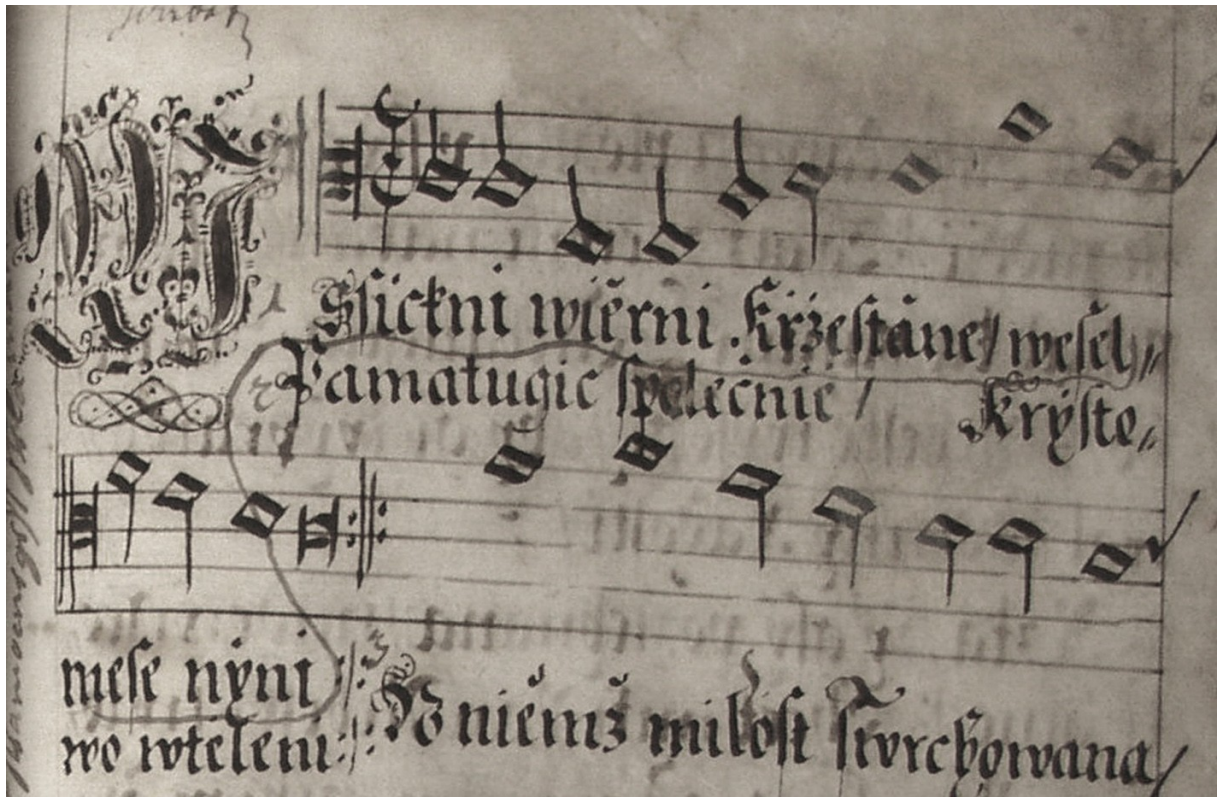 WSSsickni wiěrni Křžestáne / wesel,,
Pamatugic společnie / Krýste,,
mese nyni :|:
wo wtěleni :|: W niěmž milost stwrchowana /